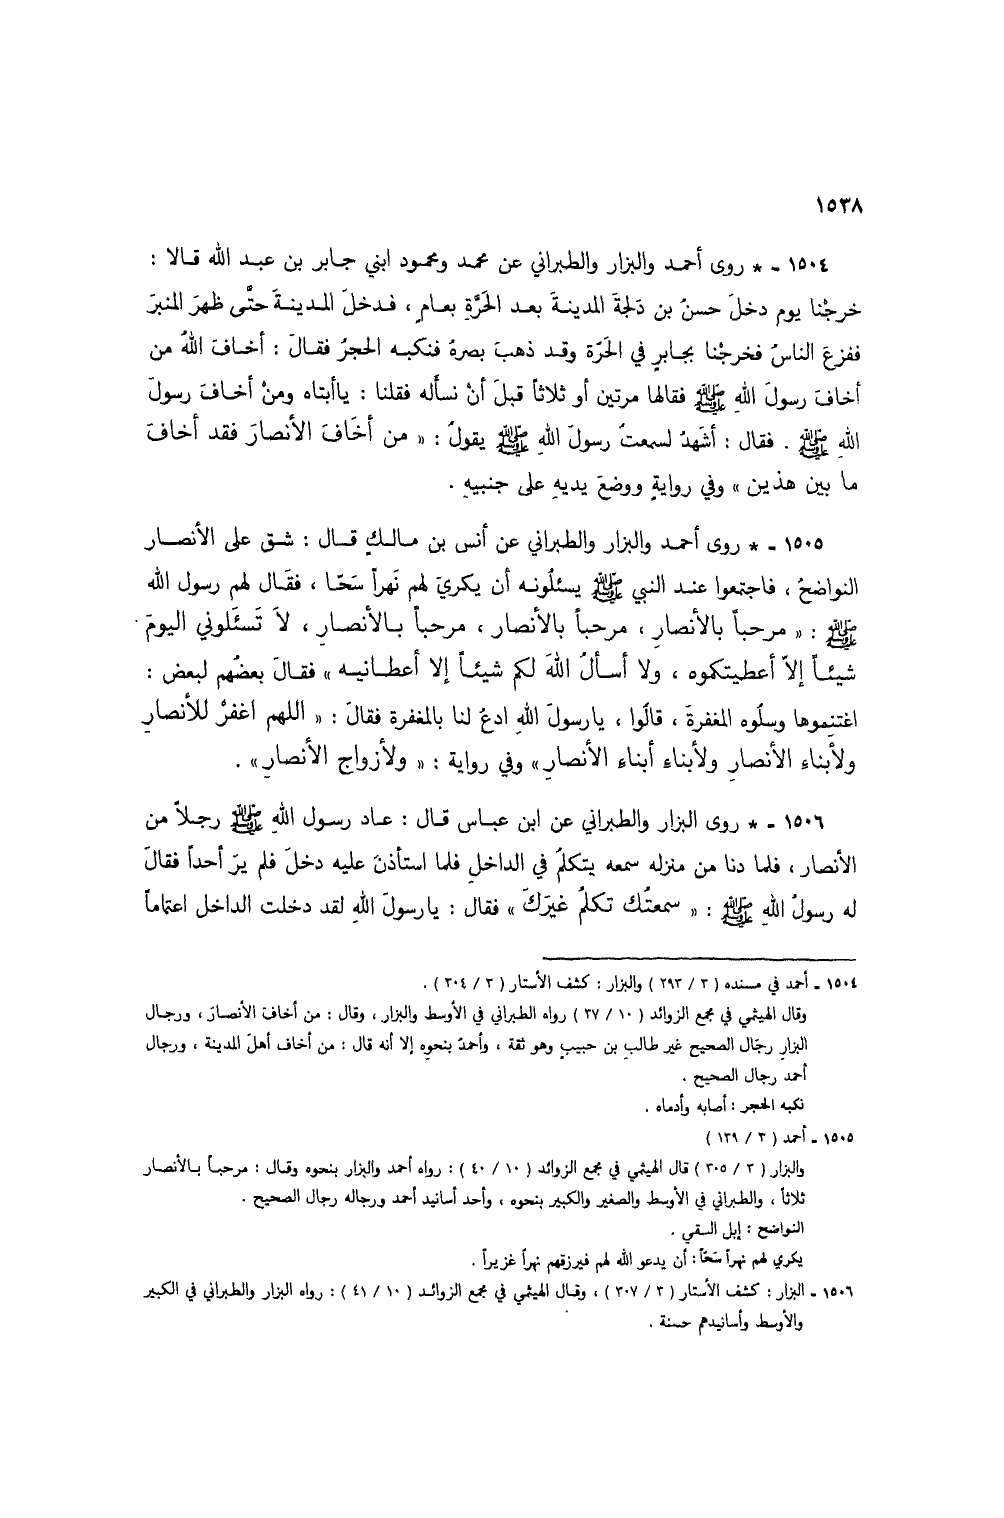 ١٥٣٨
١٥٠٤ ـ * روى أحمد والبزار والطبراني عن محمد ومحمود ابني جابر بن عبد الله قالا :
خرجْنا يوم دخلَ حسنُ بن دَلجةَ المدينةَ بعد الحَرَّةِ بعامٍ ، فدخلَ المدينةَ حتَّى ظهرَ المنبرَ
ففزعَ الناسُ فخرجْنا بجابرٍ في الحَرّة وقد ذهبَ بصرهُ فنكبه الحجرُ فقالَ : أخافَ اللهُ من
أخافَ رسولَ اللهِ ﷺ فقالها مرتين أو ثلاثاً قبلَ أنْ نسأله فقلنا : ياأبتاه ومنْ أخافَ رسولَ
اللهِ ﷺ . فقال : أشهَدُ لسمعتُ رسولَ اللهِ ﷺ يقولُ : « من أخَافَ الأنصارَ فقد أخافَ
ما بين هذين » وفي روايةٍ ووضعَ يديهِ على جنبيهِ .
١٥٠٥ ـ * روى أحمد والبزار والطبراني عن أنس بن مالكٍ قال : شق على الأنصار
النواضحُ ، فاجتمعوا عند النبي ﷺ يسئلُونه أن يكريَ لهم نَهراً سَحّا ، فقَال لهم رسول الله
ﷺ : « مرحباً بالأنصارِ ، مرحباً بالأنصار ، مرحباً بالأنصارِ ، لاَ تَسئَلوني اليومَ
شيئاً إلاّ أعطيتكموه ، ولا أسألُ اللهَ لكم شيئاً إلا أعطانيه » فقالَ بعضُهم لبعض :
اغتنِموها وسلُوه المغفرةَ ، قالُوا ، يارسولَ اللهِ ادعُ لنا بالمغفرة فقالَ : « اللهم اغفرْ للأنصارِ
ولأبناء الأنصارِ ولأبناء أبناء الأنصارِ» وفي رواية : « ولأزواج الأنصارِ» .
١٥٠٦ ـ * روى البزار والطبراني عن ابن عباس قال : عاد رسول اللهِ ﷺ رجلاً من
الأنصار ، فلما دنا من منزله سمعه يتكلمُ في الداخلِ فلما استأذنَ عليه دخلَ فلم يرَ أحداً فقالَ
له رسولُ اللهِ ﷺ : « سمعتُك تكلمُ غيرَكَ » فقال : يارسولَ اللهِ لقد دخلت الداخل اعتماماً
١٥٠٤ ـ أحمد في مسنده ( ٣ / ٢٩٣ ) والبزار : كشف الأستار ( ٣ / ٣٠٤ ) .
وقال الهيثمي في مجمع الزوائد ( ١٠ / ٣٧ ) رواه الطبراني في الأوسط والبزار ، وقال : من أخاف الأنصارَ ، ورجال
البزارِ رجَال الصحيح غير طالب بن حبيبٍ وهو ثقة ، وأحمدُ بنحوِه إلا أنه قال : من أخاف أهلَ المدينة ، ورجال
أحمد رجال الصحيح .
نكبه الحجر : أصابه وأدماه .
١٥٠٥ ـ أحمد ( ٣ / ١٣٩ )
والبزار ( ٣ / ٣٠٥ ) قال الهيثمي في مجمع الزوائد ( ١٠ / ٤٠ ) : رواه أحمد والبزار بنحوه وقال : مرحباً بالأنصار
ثلاثاً ، والطبراني في الأوسط والصغير والكبير بنحوه ، وأحد أسانيد أحمد ورجاله رجال الصحيح .
النواضح : إبل السقي .
يكري لهم نهراً سَحّاً : أن يدعو الله لهم فيرزقهم نهراً غزيراً .
١٥٠٦ ـ البزار : كشف الأستار ( ٣ / ٣٠٧ ) ، وقال الهيثمي في مجمع الزوائد ( ١٠ / ٤١ ) : رواه البزار والطبراني في الكبير
والأوسط وأسانيدهم حسنة .